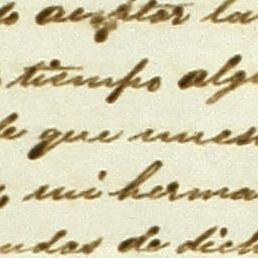 aceptar la
tiempo alg
de que nues
mi herma
udos de dich